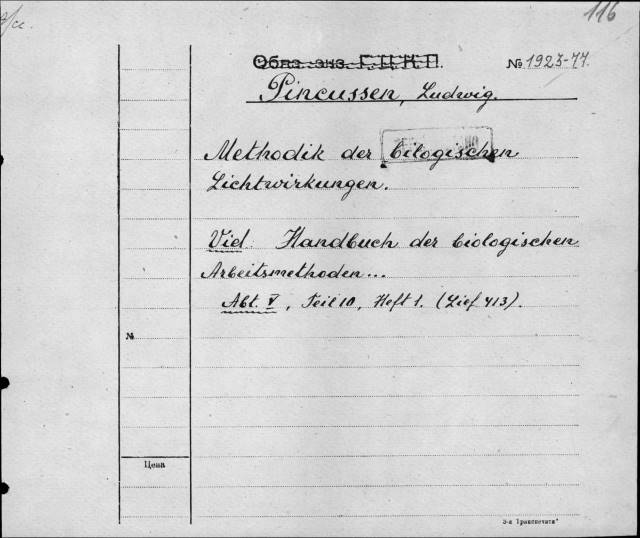 116
Обяз. экз. Г.Ц.К.П. № 1923-77.
Pincussen, Ludwig.
Methodik der bilogischen
Lichtwirkungen.
Vid. Handbuch der biologischen
Arbeitsmethoden...
Abt. V, Teil 10, Heft 1. (Lief 413).
№
Цена
3-я Транспечати"